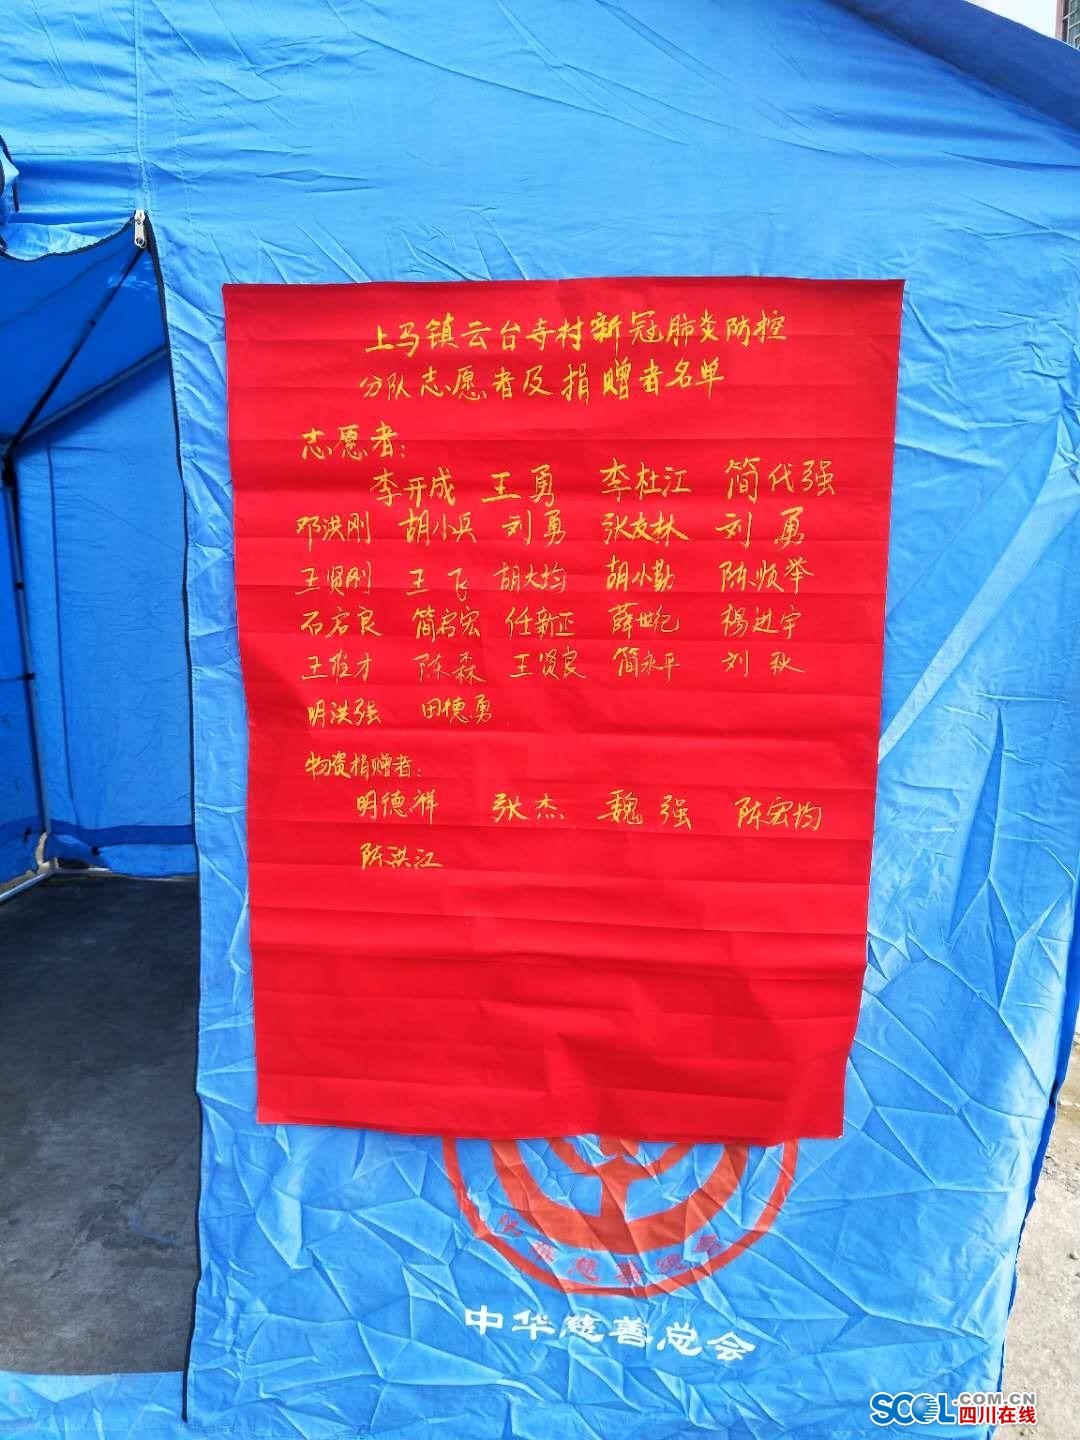 上马镇云台寺村新冠肺炎防控
分队志愿者及捐赠者名单
志愿者:
李开成 王勇 李杜江 简代强
邓洪刚 胡小兵 刘勇 张友林 刘勇
王贤刚 王飞 胡大均 胡小勤 陈顺举
石启良 简启宏 任新正 薛世纪 杨进宇
王维才 陈森 王贤良 简永平 刘秋
明洪强 田德勇
物资捐赠者:
明德祥 张杰 魏强 陈宏均
陈洪江
中华慈善总会
中华慈善总会
SCOL.COM.CN
四川在线